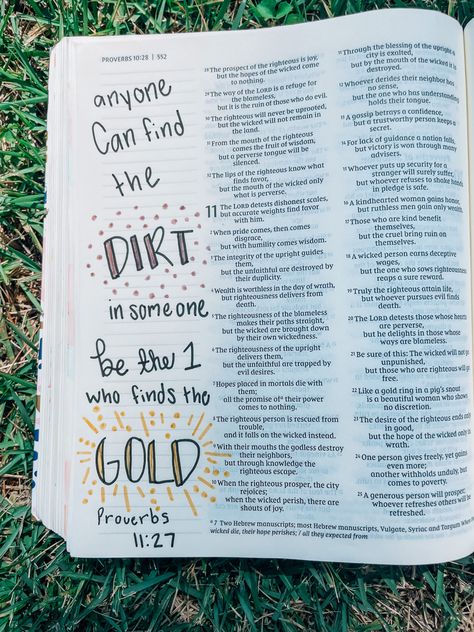 PROVERBS 10:28 | 552
anyone
Can find
the
DIRT
in someone
be the 1
who finds the
GOLD
Proverbs
11:27
28 The prospect of the righteous is joy,
but the hopes of the wicked come
to nothing.
29 The way of the LORD is a refuge for
the blameless,
but it is the ruin of those who do evil.
30 The righteous will never be uprooted,
but the wicked will not remain in
the land.
31 From the mouth of the righteous
comes the fruit of wisdom,
but a perverse tongue will be
silenced.
32 The lips of the righteous know what
finds favor,
but the mouth of the wicked only
what is perverse.
11 The LORD detests dishonest scales,
but accurate weights find favor
with him.
2 When pride comes, then comes
disgrace,
but with humility comes wisdom.
3 The integrity of the upright guides
them,
but the unfaithful are destroyed by
their duplicity.
4 Wealth is worthless in the day of wrath,
but righteousness delivers from
death.
5 The righteousness of the blameless
makes their paths straight,
but the wicked are brought down
by their own wickedness.
6 The righteousness of the upright
delivers them,
but the unfaithful are trapped by
evil desires.
7 Hopes placed in mortals die with
them;
all the promise of their power
comes to nothing.
8 The righteous person is rescued from
trouble,
and it falls on the wicked instead.
9 With their mouths the godless destroy
their neighbors,
but through knowledge the
righteous escape.
10 When the righteous prosper, the city
rejoices;
when the wicked perish, there are
shouts of joy.
11 Through the blessing of the upright a
city is exalted,
but by the mouth of the wicked it is
destroyed.
12 Whoever derides their neighbor has
no sense,
but the one who has understanding
holds their tongue.
13 A gossip betrays a confidence,
but a trustworthy person keeps a
secret.
14 For lack of guidance a nation falls,
but victory is won through many
advisers.
15 Whoever puts up security for a
stranger will surely suffer,
but whoever refuses to shake hands
in pledge is safe.
16 A kindhearted woman gains honor,
but ruthless men gain only wealth.
17 Those who are kind benefit
themselves,
but the cruel bring ruin on
themselves.
18 A wicked person earns deceptive
wages,
but the one who sows righteousness
reaps a sure reward.
19 Truly the righteous attain life,
but whoever pursues evil finds
death.
20 The LORD detests those whose hearts
are perverse,
but he delights in those whose
ways are blameless.
21 Be sure of this: The wicked will not go
unpunished,
but those who are righteous will go
free.
22 Like a gold ring in a pig's snout
is a beautiful woman who shows
no discretion.
23 The desire of the righteous ends only
in good,
but the hope of the wicked only in
wrath.
24 One person gives freely, yet gains
even more;
another withholds unduly, but
comes to poverty.
25 A generous person will prosper;
whoever refreshes others will be
refreshed.
a 7 Two Hebrew manuscripts; most Hebrew manuscripts, Vulgate, Syriac and Targum When
wicked die, their hope perishes; / all they expected from